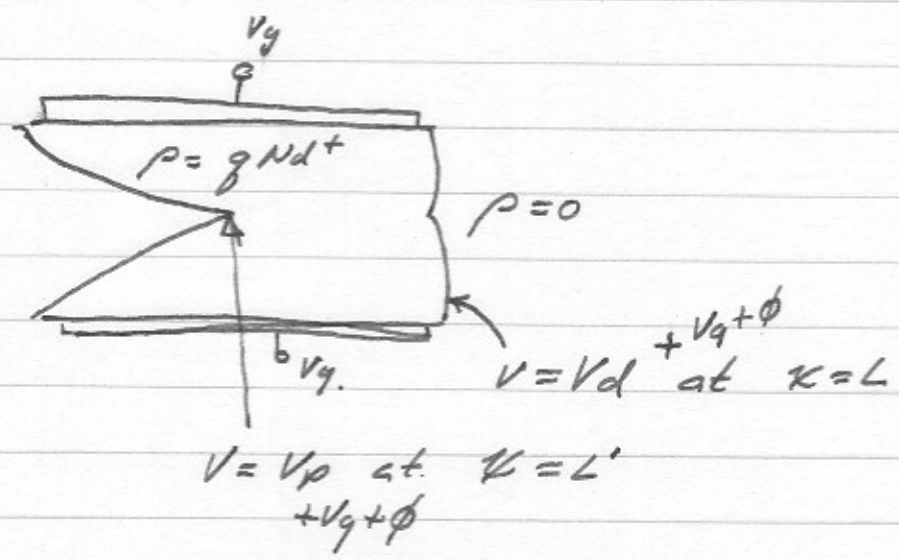 Vg
ρ = qNd+
ρ = 0
+Vg+φ
V = Vd at x = L
Vg.
V = Vp at. x = L'
+Vg+φ